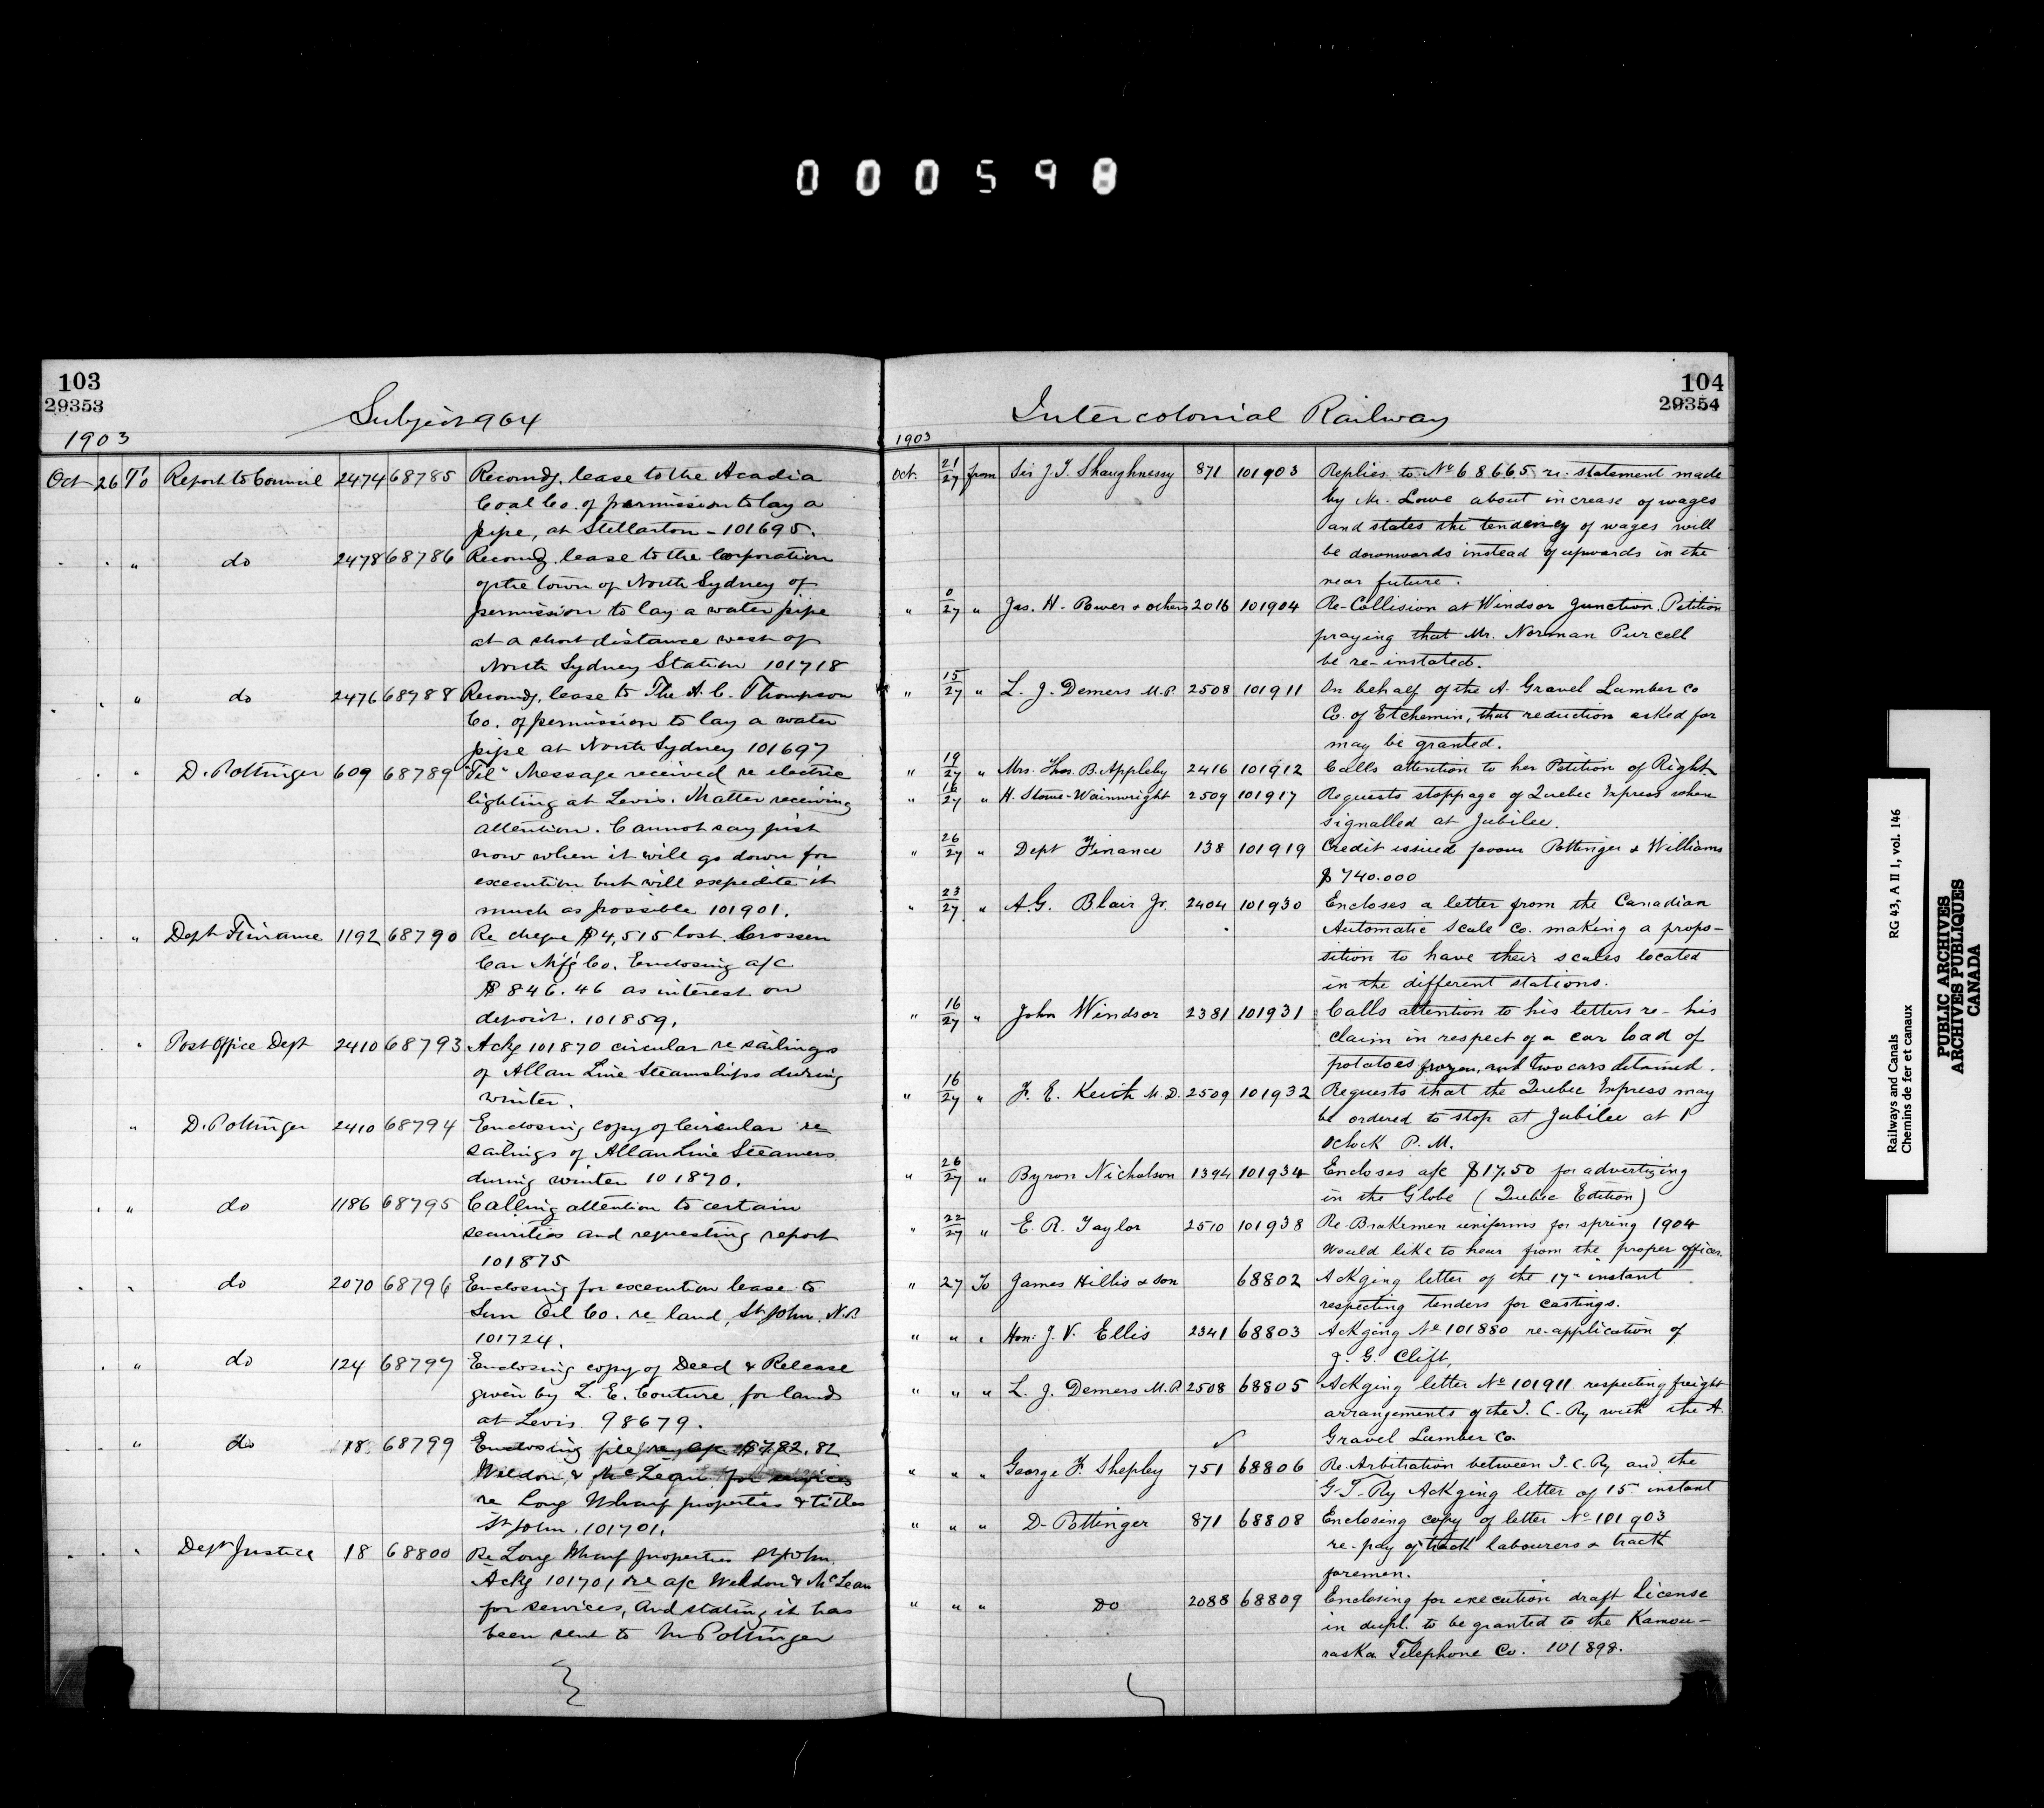 000598
103
29353
Subject 964
1903
Oct 26 To Report to Council 2474 68785 Recomdg. lease to the Acadia
Coal Co. of permission to lay a
pipe, at Stellarton - 101695.
" do 2478 68786 Recomdg. lease to the Corporation
of the town of North Sydney of
permission to lay a water pipe
at a short distance west of
North Sydney Station 101718
" do 2476 68788 Recomdg. lease to The A. C. Thompson
Co. of permission to lay a water
pipe at North Sydney 101697
" D. Pottinger 609 68789 "Tel" Message received re electric
lighting at Levis. Matter receiving
attention. Cannot say just
now when it will go down for
execution but will expedite it
much as possible 101901.
" Dept Finance 1192 68790 Re cheque $4,515 lost. Crossen
Car M'f'g Co. Enclosing a/c
$846.46 as interest on
deposit. 101859.
" Post Office Dept 2410 68793 Ackg 101870 circular re sailings
of Allan Line Steamships during
winter.
" D. Pottinger 2410 68794 Enclosing copy of Circular re
sailings of Allan Line Steamers
during winter 101870.
" do 1186 68795 Calling attention to certain
securities and requesting report
101875
" do 2070 68796 Enclosing for execution lease to
Sun Oil Co. re land, St John, N.B
101724.
" do 124 68797 Enclosing copy of Deed & Release
given by L. E. Couture, for lands
at Levis 98679.
" do 18 68799 Enclosing file re a/c $782.82
Weldon & for services
re Long Wharf properties & titles
St John. 101701.
" Dept Justice 18 68800 Re Long Wharf properties St John.
Ackg 101701 re a/c Weldon & McLean
for services, and stating it has
been sent to Mr Pottinger
104
29354
Intercolonial Railway
1903
Oct. 21/27 from Sir J. T. Shaughnessy 871 101903 Replies to No 68665 re. statement made
by Mr. Lowe about increase of wages
and states the tendency of wages will
be downwards instead of upwards in the
near future.
" 0/27 " Jas. H. Power & others 2016 101904 Re-Collision at Windsor Junction. Petition
praying that Mr. Norman Purcell
be re-instated.
" 15/27 " L. J. Demers M.P. 2508 101911 On behalf of the A. Gravel Lumber Co
Co. of Etchemin, that reduction asked for
may be granted.
" 19/27 " Mrs. Thos. B. Appleby 2416 101912 Calls attention to her Petition of Right
" 16/27 " H. Stowe-Wainwright 2509 101917 Requests stoppage of Quebec Express when
signalled at Jubilee.
" 26/27 " Dept Finance 138 101919 Credit issued favour Pottinger & Williams
$740.000
" 23/27 " A.G. Blair Jr. 2404 101930 Encloses a letter from the Canadian
Automatic Scale Co. making a propo-
sition to have their scales located
in the different stations.
" 16/27 " John Windsor 2381 101931 Calls attention to his letters re- his
claim in respect of a car load of
potatoes frozen, and two cars detained.
" 16/27 " F. E. Keith M.D. 2509 101932 Requests that the Quebec Express may
be ordered to stop at Jubilee at 1
Oclock P.M.
" 26/27 " Byron Nicholson 1394 101934 Encloses a/c $17.50 for advertizing
in the Globe (Quebec Edition)
" 22/27 " E. R. Taylor 2510 101938 Re. Brakemen uniforms for spring 1904
Would like to hear from the proper officer.
" 27 To James Hillis & Son 68802 Ackging letter of the 17" instant
respecting tenders for castings.
" " " Hon: J. V. Ellis 2341 68803 Ackging No 101880 re-application of
J. G. Clift,
" " " L. J. Demers M.P. 2508 68805 Ackging letter No 101911 respecting freight
arrangements of the I. C. Ry with the A.
Gravel Lumber Co.
" " " George F. Shepley 751 68806 Re. Arbitration between I. C. Ry and the
G. T. Ry Ackging letter of 15" instant
" " " D- Pottinger 871 68808 Enclosing copy of letter No 101903
re-pay of track labourers & track
foremen.
" " " Do 2088 68809 Enclosing for execution draft License
in dupl. to be granted to the Kamou-
raska Telephone Co. 101898.
Railways and Canals RG 43, A II 1, vol. 146
Chemins de fer et canaux
PUBLIC ARCHIVES
ARCHIVES PUBLIQUES
CANADA